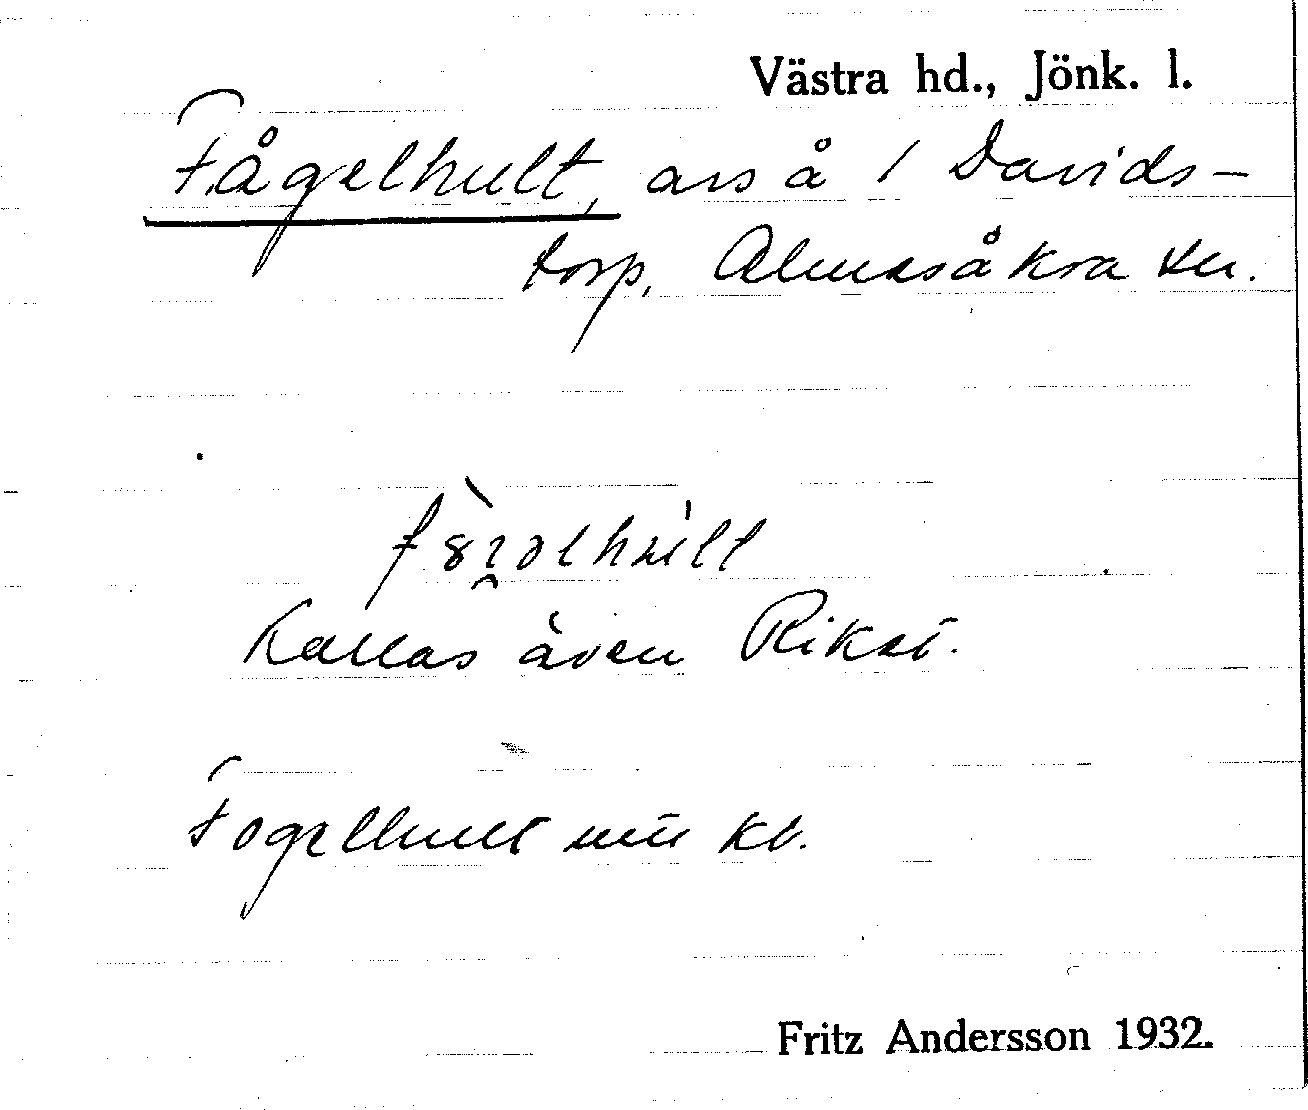 Västra hd., Jönk. l.
Fågelhult, avs å 1 Davids-
torp, Almesåkra sn.
Kallas även
Fogelhult min kb.
Fritz Andersson 1932.